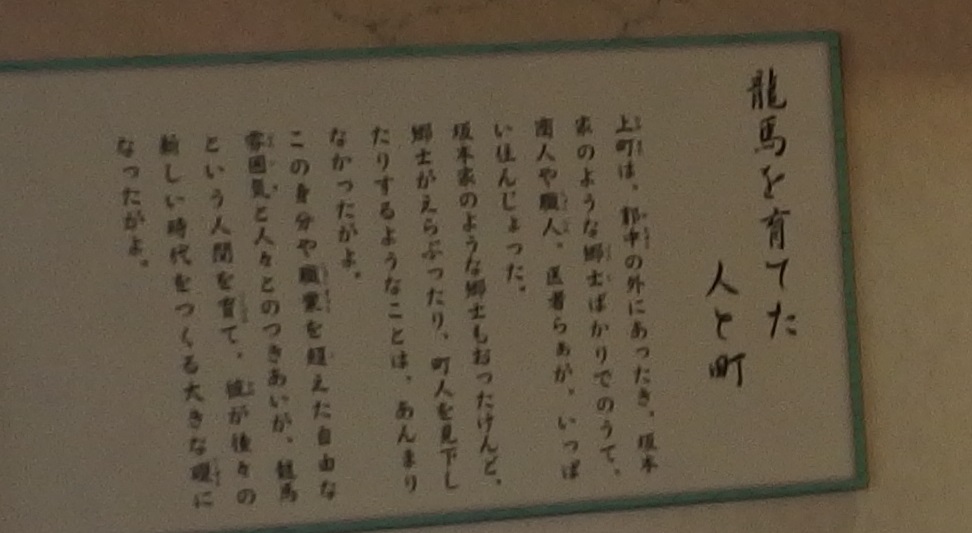 龍馬を育てた
人と町
上町は、郭中の外にあったき、坂本
家のような郷士ばかりでのうて、
商人や職人、医者らぁが、いっぱ
い住んじょった。
坂本家のような郷士もおったけんど、
郷士がえらぶったり、町人を見下し
たりするようなことは、あんまり
なかったがよ。
この身分や職業を超えた自由な
雰囲気と人々とのつきあいが、龍馬
という人間を育て、彼が後々の
新しい時代をつくる大きな礎に
なったがよ。